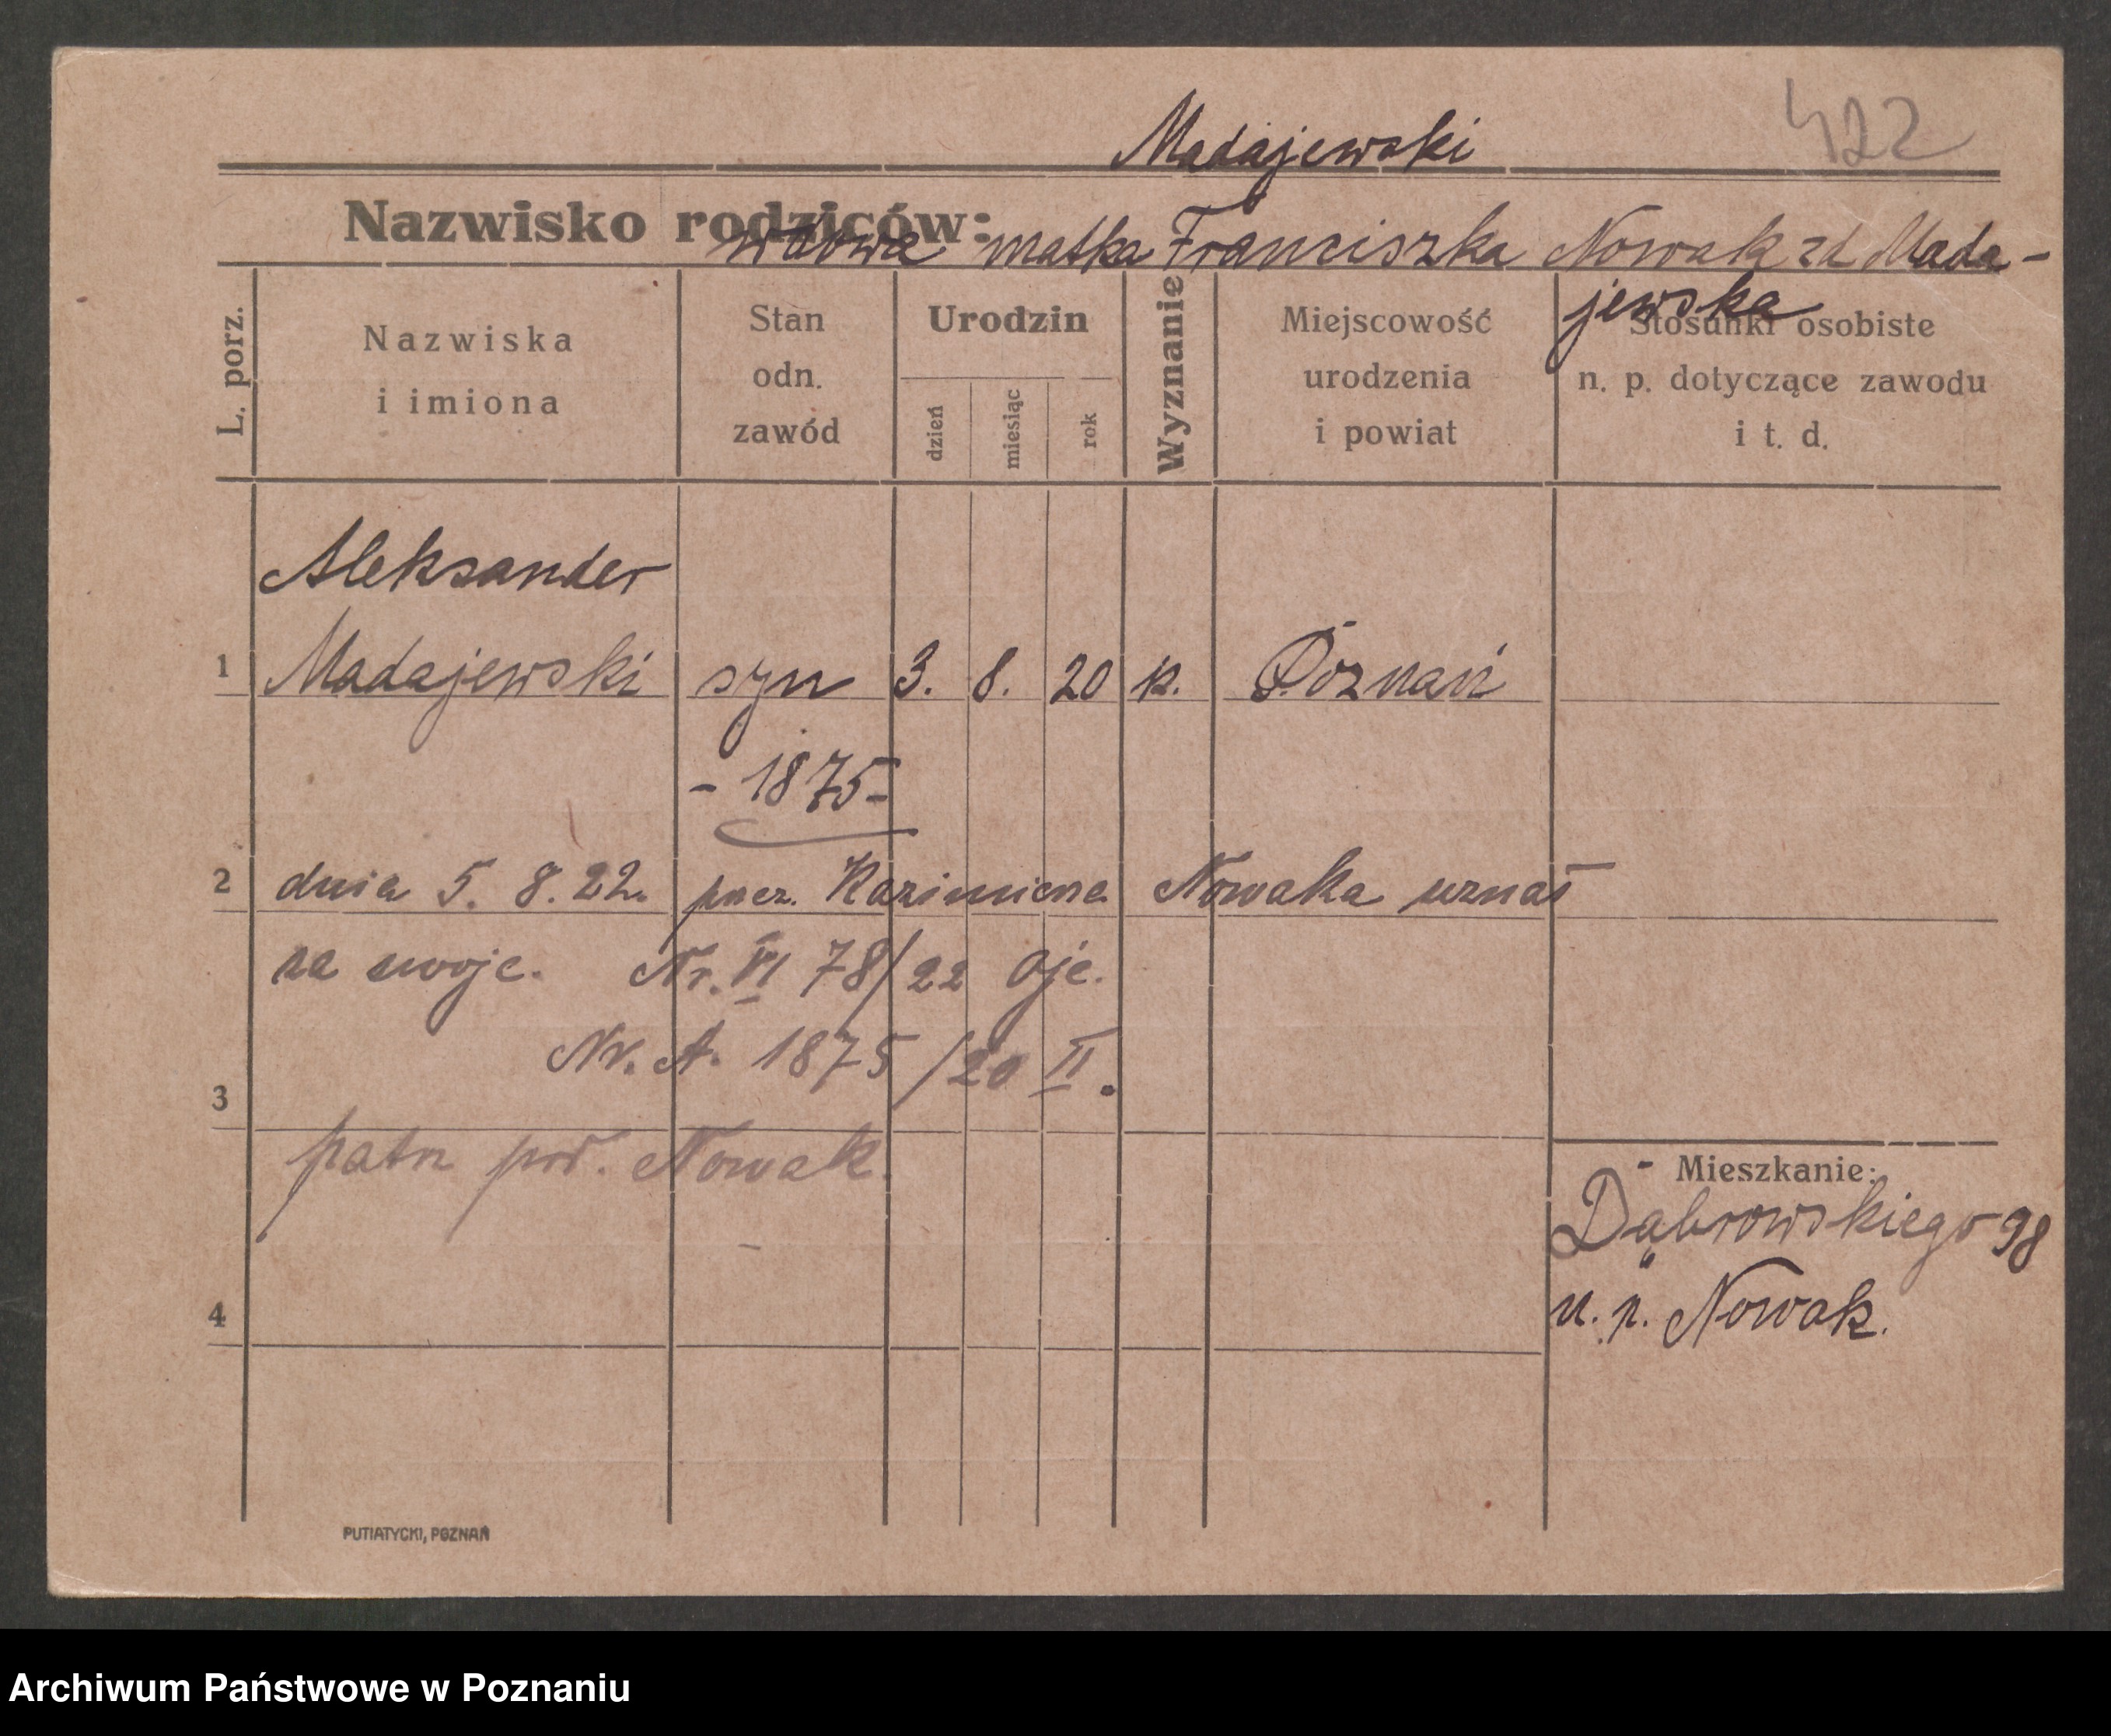 422
Madajewski
Nazwisko rodziców:
wdowa matka Franciszka Nowak zd Mada-
jewska
L. porz.
Nazwiska
i imiona
Stan
odn.
zawód
Urodzin
dzień
miesiąc
rok
Wyznanie
Miejscowość
urodzenia
i powiat
Stosunki osobiste
n. p. dotyczące zawodu
i t. d.
Aleksander
1 Madajewski syn 3. 8. 20 k. Poznań
- 1875 -
2 dnia 5. 8. 22. przez Kazimierza Nowaka uznał
za swoje. Nr. VI 78/22 Oje.
Nr. A. 1875/20 II.
3
patrz pod. Nowak.
Mieszkanie:
Dąbrowskiego 98
u. p. Nowak.
4
PUTIATYCKI, POZNAŃ
Archiwum Państwowe w Poznaniu